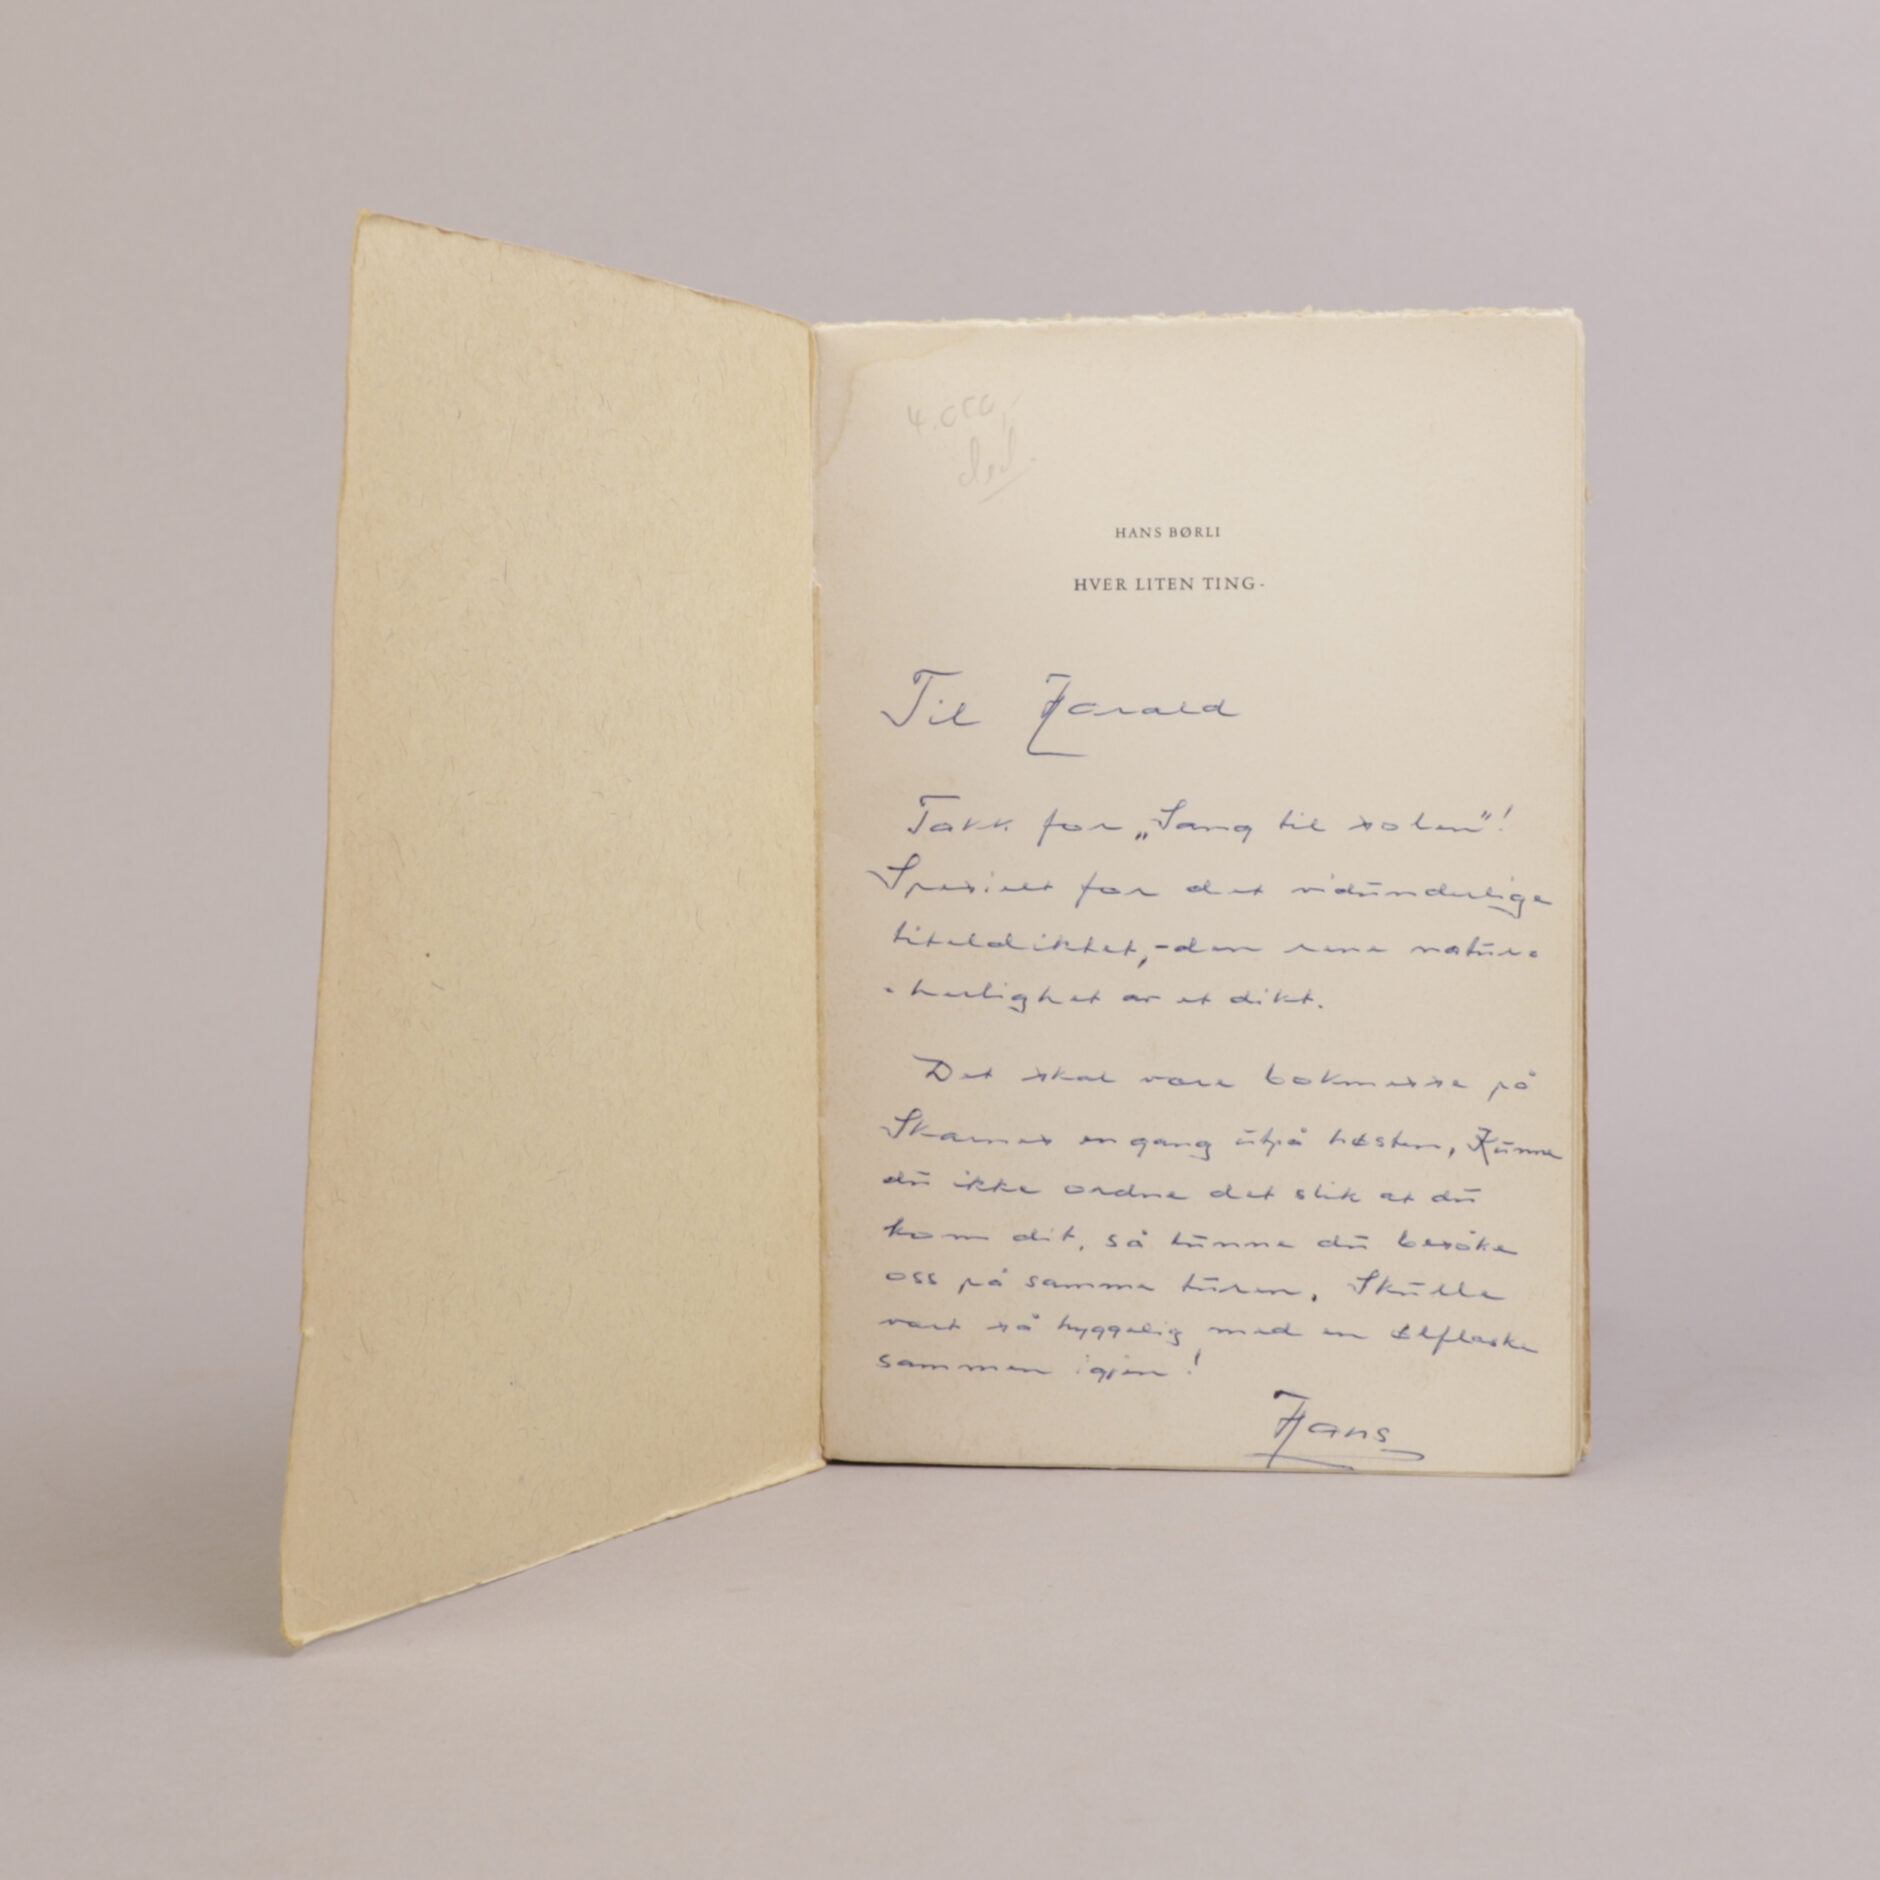 4.000,-
ded.
HANS BØRLI
HVER LITEN TING-
Til Harald
Takk for „Sang til solen"!
Spesielt for det vidunderlige
titeldiktet,-den rene natur-
-herlighet av et dikt.
Det skal være bokmesse på
Skarnes en gang utpå høsten, Kunne
du ikke ordne det slik at du
kom dit, så kunne du besøke
oss på samme turen. Skulle
vært så hyggelig med en ølflaske
sammen igjen!
Hans